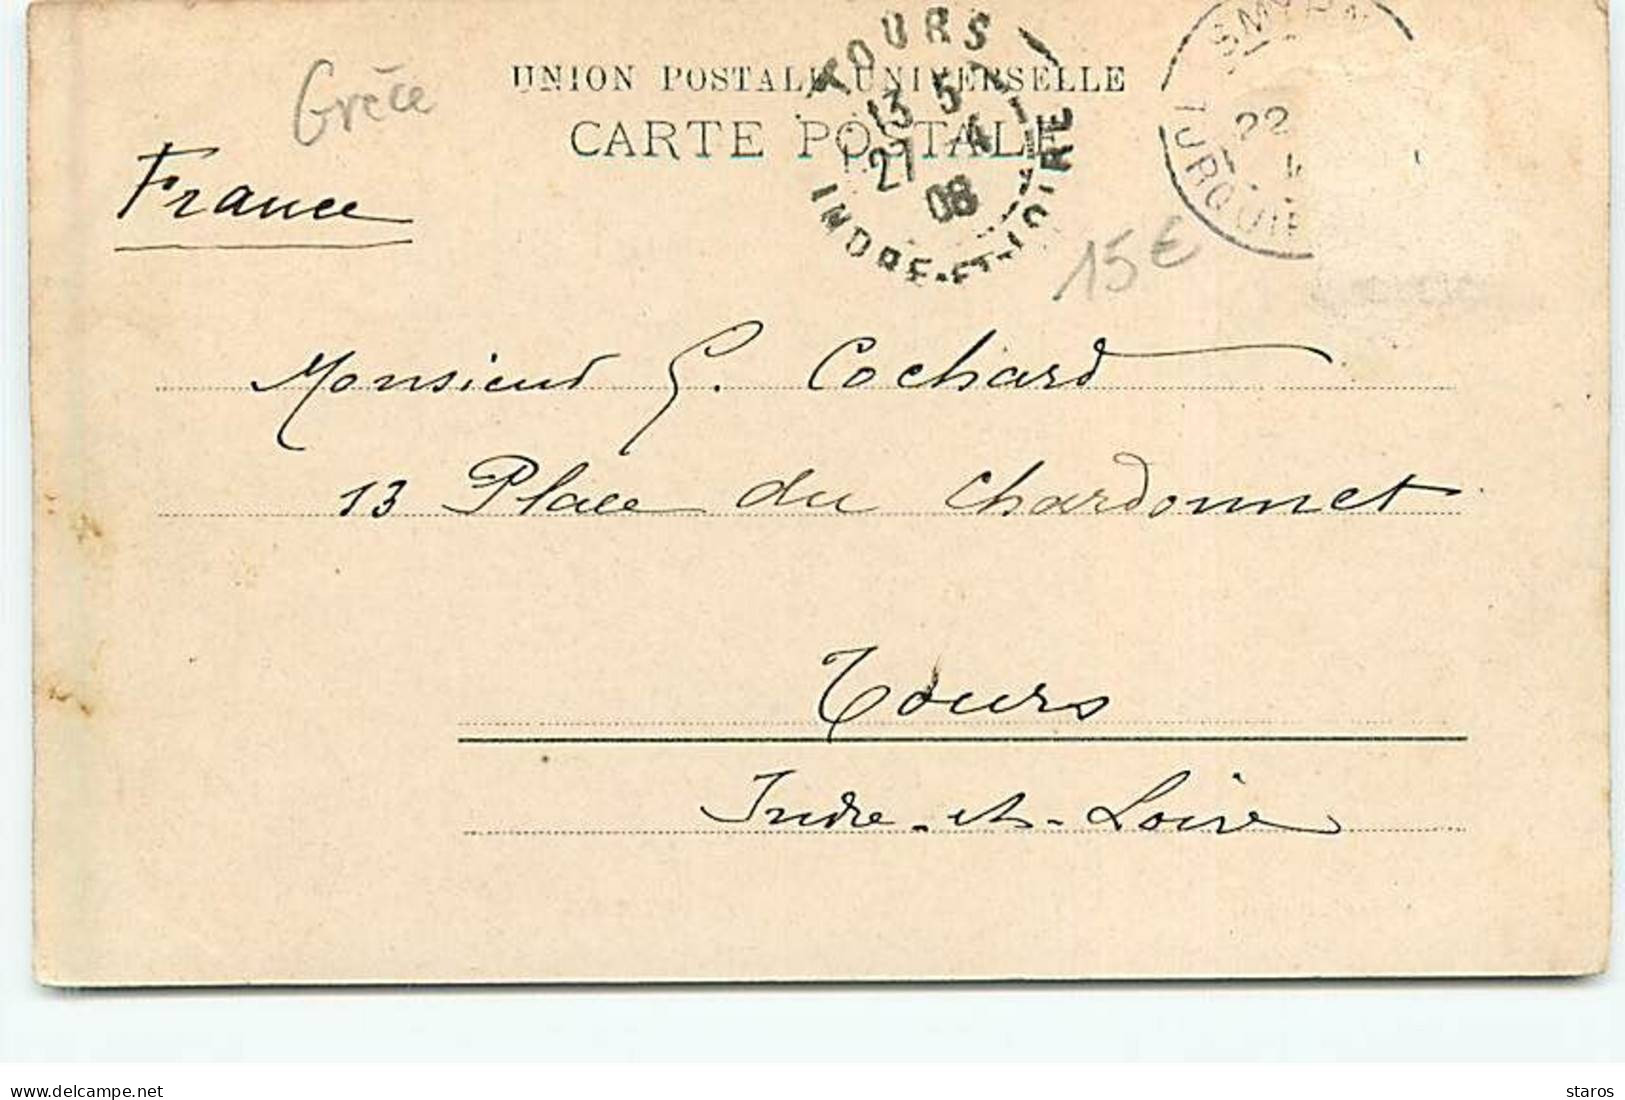 Grèce
UNION POSTALE UNIVERSELLE
CARTE POSTALE
TOURS
13 5
27 4
08
INDRE-ET-LOIRE
SMYRN
22
TURQUIE
France
15€
Monsieur G. Cochard
13 Place du Chardonnet
Tours
Indre-et-Loire
www.delcampe.net
staros